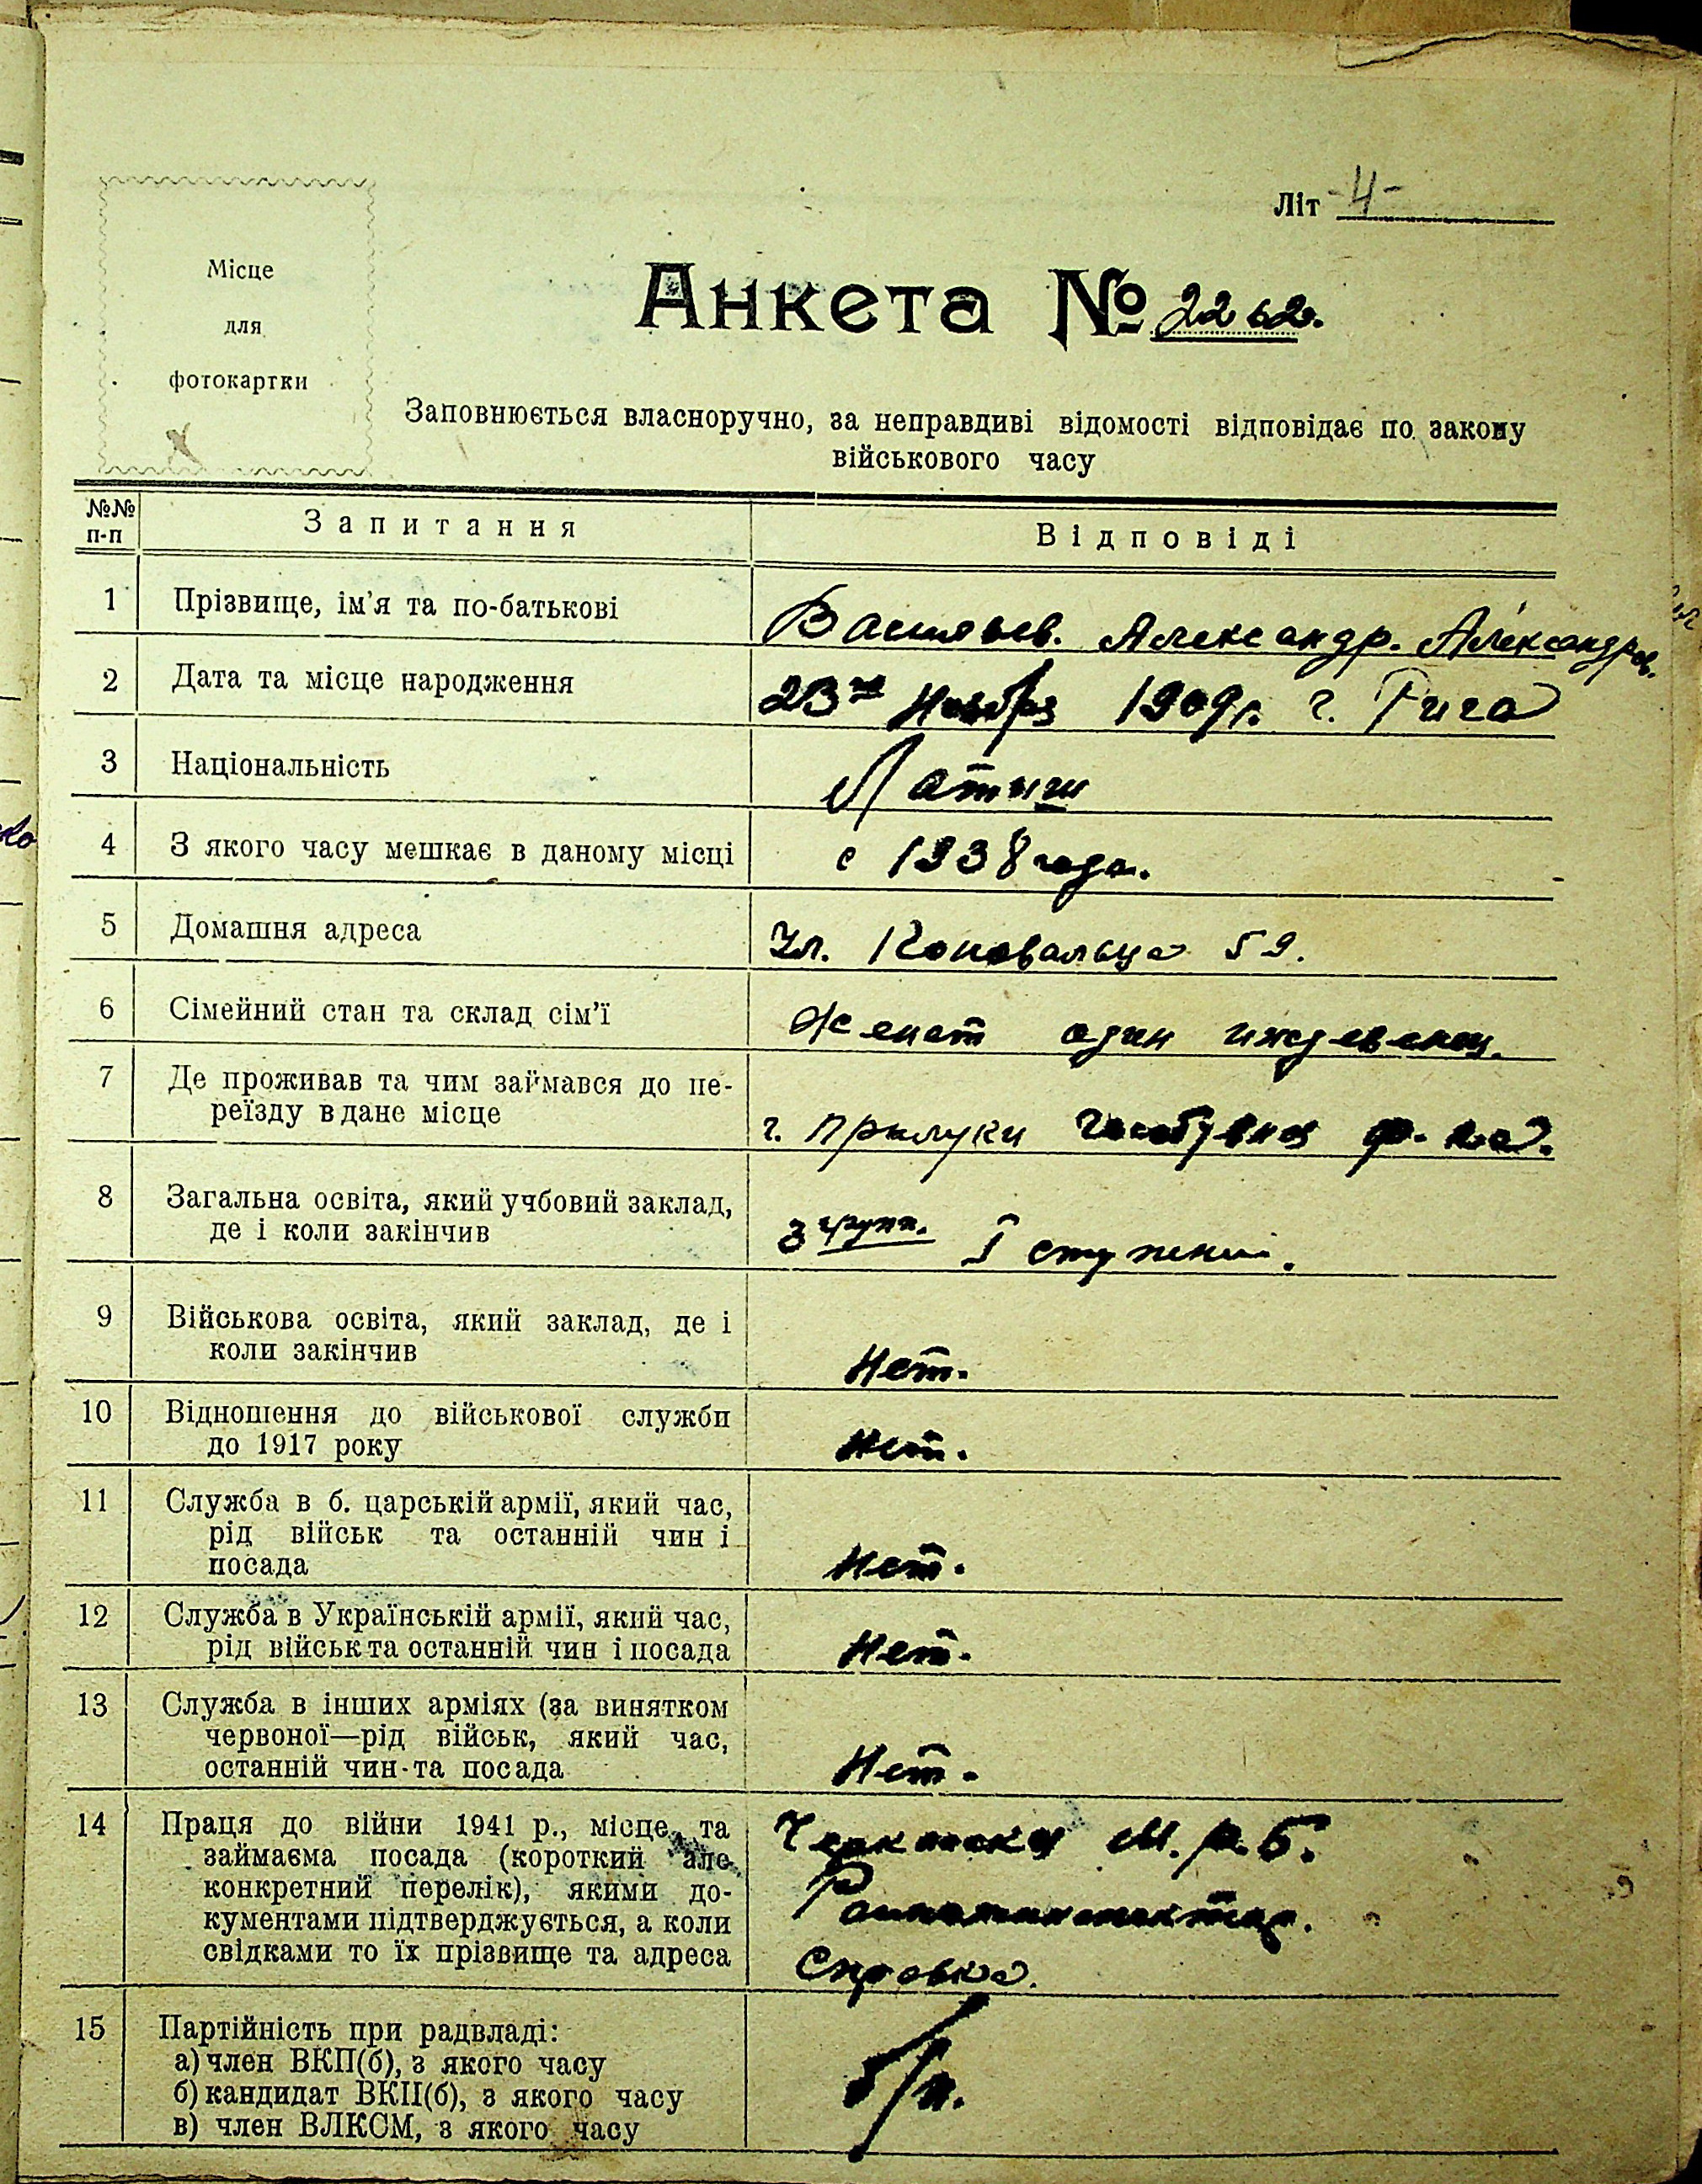 Літ -Ч-
Місце
для
фотокартки
Анкета № 2262.
Заповнюється власноручно, за неправдиві відомості відповідає по закону
військового часу
№№ п-п Запитання Відповіді
1 Прізвище, ім'я та по-батькові Васильев. Александр. Александров.
2 Дата та місце народження 23го Ноября 1909г. г. Рига
3 Національність Латыш
4 З якого часу мешкає в даному місці с 1938 года.
5 Домашня адреса Ул. Коновальца 59.
6 Сімейний стан та склад сім'ї Женат один иждевенец.
7 Де проживав та чим займався до пе-
реїзду в дане місце г. Прилуки ф-ка.
8 Загальна освіта, який учбовий заклад,
де і коли закінчив 3 групп. I ступени.
9 Військова освіта, який заклад, де і
коли закінчив Нет.
10 Відношення до військової служби
до 1917 року Нет.
11 Служба в б. царській армії, який час,
рід військ та останній чин і
посада Нет.
12 Служба в Українській армії, який час,
рід військ та останній чин і посада Нет.
13 Служба в інших арміях (за винятком
червоної—рід військ, який час,
останній чин та посада Нет.
14 Праця до війни 1941 р., місце та М.р.Б.
займаєма посада (короткий але
конкретний перелік), якими до-
кументами підтверджується, а коли
свідками то їх прізвище та адреса Справка.
15 Партійність при радвладі:
а) член ВКП(б), з якого часу б/п.
б) кандидат ВКП(б), з якого часу
в) член ВЛКСМ, з якого часу